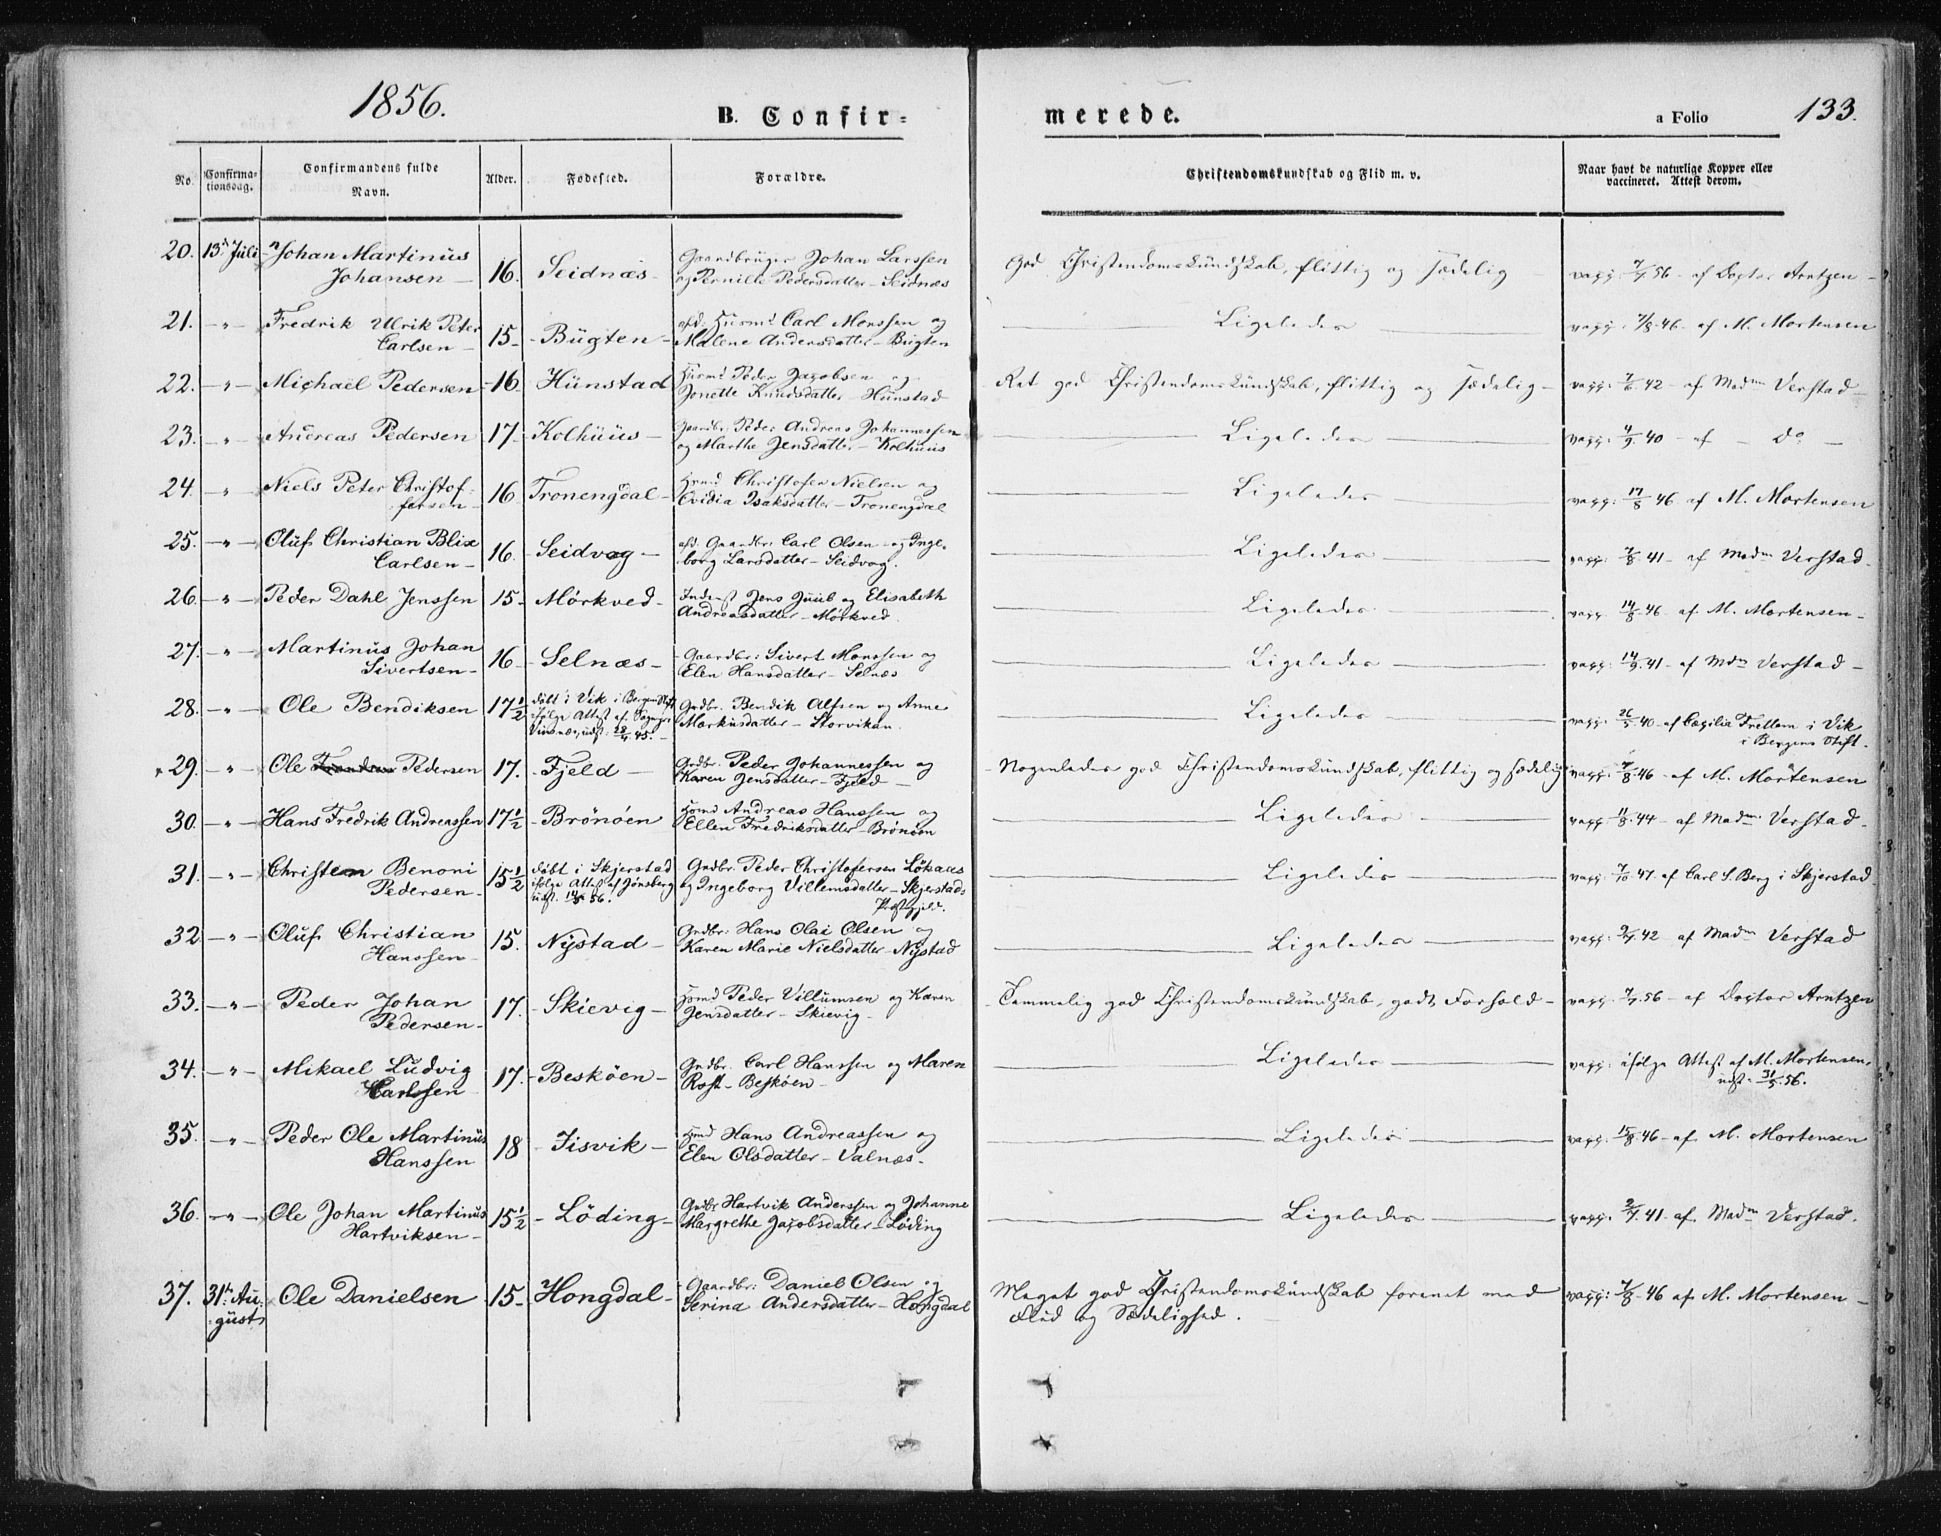 1856.
B. Confir=
merede.
a Folio 133.
No.
Confirma-
tionsdag.
Confirmandens fulde
Navn.
Alder.
Fødested.
Forældre.
Christendomskundskab og Flid m. v.
Naar havt de naturlige Kopper eller
vaccineret. Attest derom.
20. 13d Juli Johan Martinus
Johansen 16. Seidnæs Gaardbruger Johan Larssen
og Pernille Pedersdatter - Seidnæs
God Christendomskundskab, flittig og sædelig
vacc: 7/7 56 af Doctor Arntzen
21. - " - Fredrik Ulrik Peter
Carlsen 15 Bugten afd. Husmd Carl Monssen og
Malene Andersdatter - Bugten
Ligeledes
vacc: 7/8 46 af M. Mortensen
22. - " - Michael Pedersen 16 Hunstad Husmd Peder Jacobsen og
Jonette Knudsdatter Hunstad
Ret god Christendomskundskab, flittig og sædelig
vacc: 7/6 42 af Madm Verstad
23. - " - Andreas Pedersen 17 Kolhuus Gaardbr: Peder Andreas Johannessen
og Marthe Jensdatter - Kolhuus
Ligeledes
vacc: 4/9 40 - af - do -
24. - " - Niels Peter Christof-
fersen 16 Tronengdal Husmd Christofer Nielsen og
Ovidia Isaksdatter - Tronengdal
Ligeledes
vacc: 17/8 46 af M. Mortensen
25. - " - Oluf Christian Blix
Carlsen 16. Seidvog afd. Gaardbr: Carl Olsen og Inge-
borg Larsdatter - Seidvog.
Ligeledes
vacc: 7/8 41 - af Madm Verstad
26. - " - Peder Dahl Jenssen 15 Mörkved Inderst Jens Juul og Elisabeth
Andreasdatter - Mörkved
Ligeledes
vacc: 14/8 46 - af M. Mortensen
27. - " - Martinus Johan
Sivertsen 16 Selnæs Gaardbr: Sivert Monssen og
Elen Hansdatter - Selnæs
Ligeledes
vacc: 14/9 41 - af Mdm Verstad
28. - " - Ole Bendiksen 17½ döbt i Vik i Bergens Stift
ifölge Attest af
udst. 28/4 45. Grdbr. Bendik Alfsen og Anne
Markusdatter - Storvikan
Ligeledes
vacc: 26/5 40 af Cecilie Fretlem i Vik
i Bergens Stift.
29. - " - Ole Pedersen 17. Fjeld Grdbr. Peder Johannessen og
Karen Jensdatter - Fjeld
Nogenledes god Christendomskundskab, flittig og sædelig
vacc: 7/8 46 - af M. Mortensen
30. - " - Hans Fredrik Andreassen 17½ Brönöen Hsmd Andreas Hanssen og
Ellen Fredriksdatter Brönöen
Ligeledes
vacc 11/8 44 - af Madm Verstad
31. - " - Christen Benoni
Pedersen 15½ döbt i Skjerstad
ifölge Attest af Jonsberg
udst. 56. Grdbr. Peder Christofersen Lökaas
og Ingeborg Villemsdatter - Skjerstads
Præstegjeld.
Ligeledes
vacc: 7/10 47. af Carl S. Berg i Skjerstad
32 - " - Oluf Christian
Hanssen 15. Nystad Grdbr: Hans Olai Olsen og
Karen Marie Nielsdatter - Nystad
Ligeledes
vacc: 2/7 42 af Madm Verstad
33. - " - Peder Johan
Pedersen 17. Skievig Hsmd Peder Villumsen og Karen
Jensdatter - Skievig
Temmelig god Christendomskundskab, godt Forhold
vacc: 7/7 56 - af Doctor Arntzen
34. - " - Mikael Ludvig
Carlssen 17. Besköen Grdbr. Carl Hanssen og Maren
Rost - Besköen
Ligeledes
vacc: ifölge Attest af M. Mortensen,
udst. 31/5 56.
35. - " - Peder Ole Martinus
Hanssen 18 Jisvik Hsmd Hans Andreassen og
Elen Olsdatter - Valnæs
Ligeledes
vacc: 15/8 46 - af M. Mortensen
36. - " - Ole Johan Martinus
Hartviksen 15½ Löding Grdbr Hartvik Anderssen og Johanne
Margrethe Jacobsdatter - Löding
Ligeledes
vacc: 2/7 41 - af Madm Verstad.
37. 31te Au-
gust Ole Danielsen 15 Hongdal Gaardbr: Daniel Olsen og
Serina Andersdatter - Hongdal
Meget god Christendomskundskab forenet med
Flid og Sædelighed.
vacc: 7/8 46 af M. Mortensen